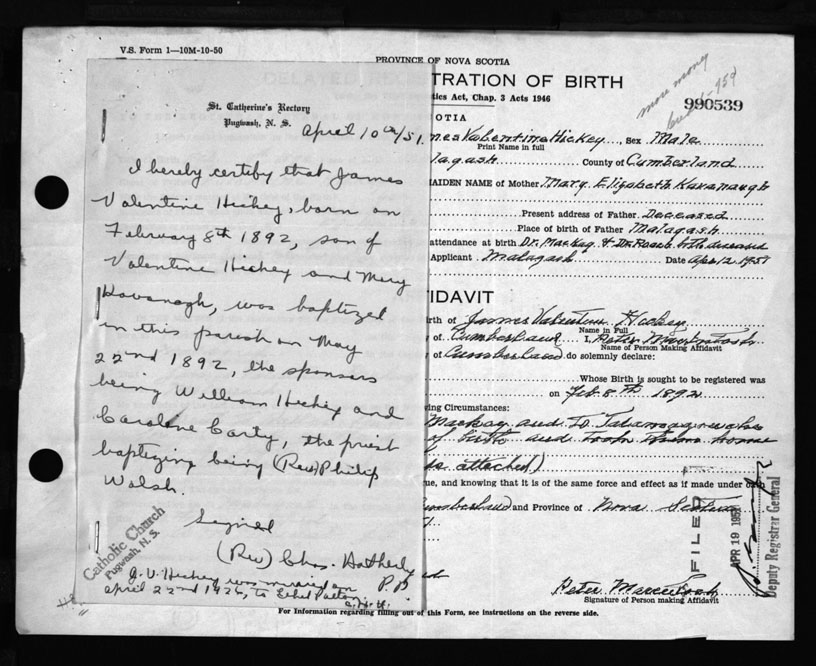 V.S. Form 1—10M-10-50
PROVINCE OF NOVA SCOTIA
TRATION OF BIRTH
tics Act, Chap. 3 Acts 1946
more money
990539
St. Catherine's Rectory
Pugwash, N. S.
April 10th/51.
I hereby certify that James
Valentine Hickey, born on
February 8th 1892, son of
Valentine Hickey and Mary
Kavanagh, was baptized
in this parish on May
22nd 1892, the sponsors
being William Hickey and
Caroline Carty, the priest
baptizing being (Rev) Philip
Walsh.
Signed
(Rev) Chas. Hatherly
P.P.
Catholic Church
Pugwash, N. S.
J. V. Hickey was married on
April 22nd 1926, to Ethel Patton
C.H.
OTIA
mes Valentine Hickey, Sex Male
Print Name in full
lagash County of Cumberland
MAIDEN NAME of Mother Mary Elizabeth Kavanaugh
Present address of Father Deceased
Place of birth of Father Malagash
attendance at birth Dr. MacKay & Dr. Roach both deceased
Applicant Malagash Date Apr 12 1951
FIDAVIT
irth of James Valentine Hickey
Name in Full
of Cumberland I, Peter MacIntosh
Name of Person Making Affidavit
of Cumberland do solemnly declare:
Whose Birth is sought to be registered was
on Feb. 8th 1892
ing Circumstances:
Mackay and
of birth and took them home
attached)
ue, and knowing that it is of the same force and effect as if made under oath
Cumberland and Province of Nova Scotia
FILED
APR 19 1951
Deputy Registrar General
Peter MacIntosh
Signature of Person making Affidavit
For Information regarding filling out of this Form, see instructions on the reverse side.